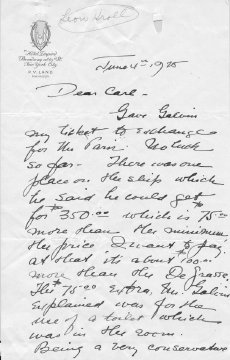 Leon Kroll
Hotel Leopard
Broadway at 63 St.
New York City
P.V. LAND
June 4th, 1925
Dear Carl -
Gave Galvin
my ticket to exchange
for the Paris. No luck
so far - There was one
place on the ship which
he said he could get
for $350.00 which is 75.00
more than the minimum
the price I want to pay.
at that its about 100.00
more than the De Grasse.
The 75.00 extra, Mr. Galvin
explained was for the
use of a toilet which
was in the room.
Being a very conservative